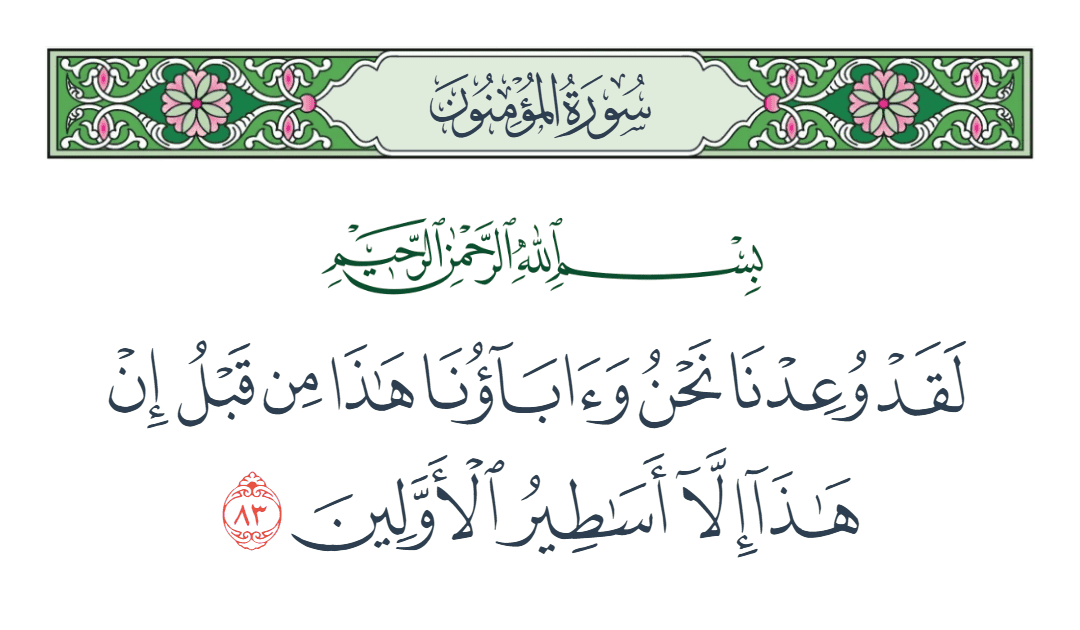 سُورَةُ المُؤْمِنُونَ
بِسْمِ ٱللَّهِ ٱلرَّحْمَٰنِ ٱلرَّحِيمِ
لَقَدْ وُعِدْنَا نَحْنُ وَءَابَآؤُنَا هَٰذَا مِن قَبْلُ إِنْ
هَٰذَآ إِلَّآ أَسَٰطِيرُ ٱلْأَوَّلِينَ ٨٣